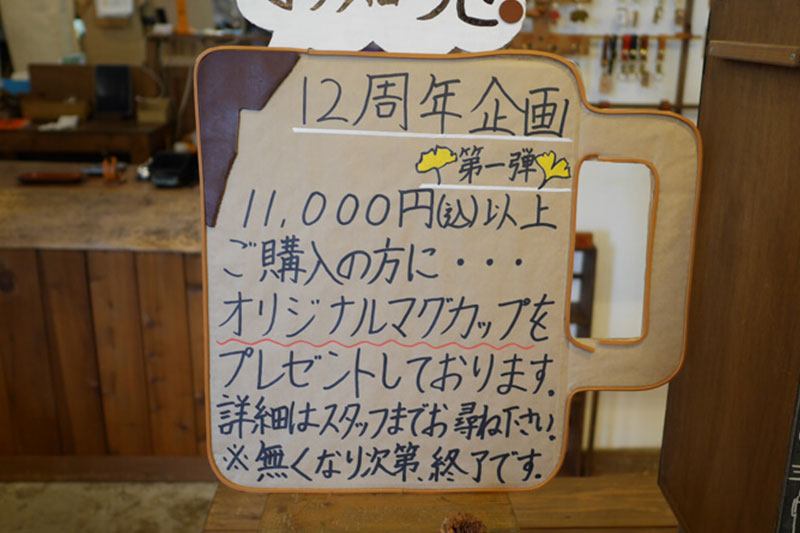 12周年企画
第一弾
11,000円(込)以上
ご購入の方に・・・
オリジナルマグカップを
プレゼントしております。
詳細はスタッフまでお尋ね下さい。
※無くなり次第、終了です。